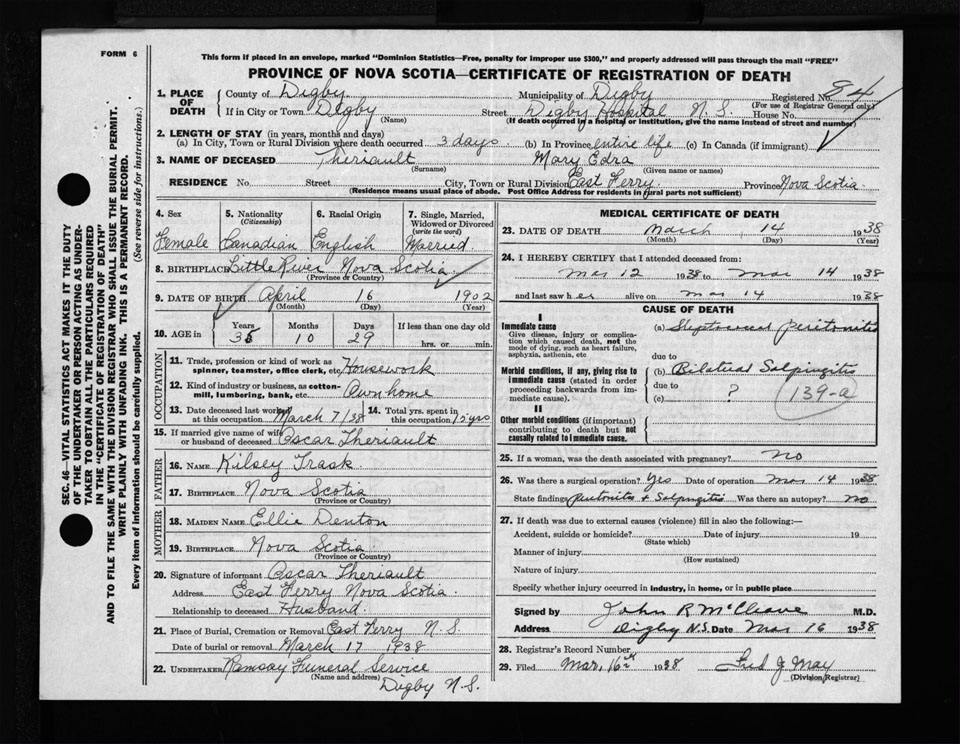 FORM 6
This form if placed in an envelope, marked "Dominion Statistics—Free, penalty for improper use $300," and properly addressed will pass through the mail "FREE"
PROVINCE OF NOVA SCOTIA—CERTIFICATE OF REGISTRATION OF DEATH
1. PLACE OF DEATH
County of Digby Municipality of Digby Registered No. 84
(For use of Registrar General only)
If in City or Town Digby Street Digby Hospital N. S. House No.
(Name) (If death occurred in a hospital or institution, give the name instead of street and number)
2. LENGTH OF STAY (in years, months and days)
(a) In City, Town or Rural Division where death occurred 3 days. (b) In Province entire life (c) In Canada (if immigrant)
3. NAME OF DECEASED Theriault Mary Edra
(Surname) (Given name or names)
RESIDENCE No. Street City, Town or Rural Division East Ferry. Province Nova Scotia
(Residence means usual place of abode. Post Office Address for residents in rural parts not sufficient)
4. Sex 5. Nationality (Citizenship) 6. Racial Origin 7. Single, Married, Widowed or Divorced (write the word)
Female Canadian English Married
8. BIRTHPLACE Little River Nova Scotia
(Province or Country)
9. DATE OF BIRTH April 16 1902
(Month) (Day) (Year)
10. AGE in Years Months Days If less than one day old
35 10 29 hrs. or min.
OCCUPATION
11. Trade, profession or kind of work as spinner, teamster, office clerk, etc. Housework
12. Kind of industry or business, as cotton-mill, lumbering, bank, etc. Own home
13. Date deceased last worked at this occupation March 7/38 14. Total yrs. spent in this occupation 15 yrs
15. If married give name of wife or husband of deceased Oscar Theriault
FATHER
16. NAME Kilsey Trask
17. BIRTHPLACE Nova Scotia
(Province or Country)
MOTHER
18. MAIDEN NAME Ellie Denton
19. BIRTHPLACE Nova Scotia
(Province or Country)
20. Signature of informant Oscar Theriault
Address East Ferry Nova Scotia.
Relationship to deceased Husband.
21. Place of Burial, Cremation or Removal East Ferry N. S.
Date of burial or removal March 17 1938
22. UNDERTAKER Ramsay Funeral Service
(Name and address) Digby N.S.
MEDICAL CERTIFICATE OF DEATH
23. DATE OF DEATH March 14 1938
(Month) (Day) (Year)
24. I HEREBY CERTIFY that I attended deceased from:
Mar 12 1938 to Mar 14 1938
and last saw her alive on Mar 14 1938
CAUSE OF DEATH
I
Immediate cause
Give disease, injury or complication which caused death, not the mode of dying, such as heart failure, asphyxia, asthenia, etc
(a) Streptococcal peritonitis
due to
Morbid conditions, if any, giving rise to immediate cause (stated in order proceeding backwards from immediate cause).
(b) Bilateral Salpingitis
due to
(c) ? 139-a
II
Other morbid conditions (if important) contributing to death but not causally related to immediate cause.
25. If a woman, was the death associated with pregnancy? No
26. Was there a surgical operation? Yes Date of operation Mar 14 1938
State findings peritonitis & Salpingitis Was there an autopsy? No
27. If death was due to external causes (violence) fill in also the following:—
Accident, suicide or homicide? Date of injury 19
(State which)
Manner of injury
(How sustained)
Nature of injury
Specify whether injury occurred in industry, in home, or in public place
Signed by John R McCleave M.D.
Address Digby N.S. Date Mar 16 1938
28. Registrar's Record Number
29. Filed Mar. 16th 1938 Fred J May
(Division Registrar)
SEC. 46—VITAL STATISTICS ACT MAKES IT THE DUTY
OF THE UNDERTAKER OR PERSON ACTING AS UNDER-
TAKER TO OBTAIN ALL THE PARTICULARS REQUIRED
IN THE "CERTIFICATE OF REGISTRATION OF DEATH"
AND TO FILE THE SAME WITH THE DIVISION REGISTRAR WHO SHALL ISSUE THE BURIAL PERMIT.
WRITE PLAINLY WITH UNFADING INK. THIS IS A PERMANENT RECORD.
Every item of information should be carefully supplied. (See reverse side for instructions.)